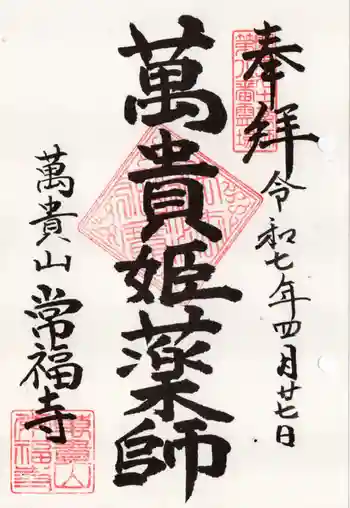 奉拝
令和七年四月廿七日
萬貴姫薬師
萬貴山 常福寺